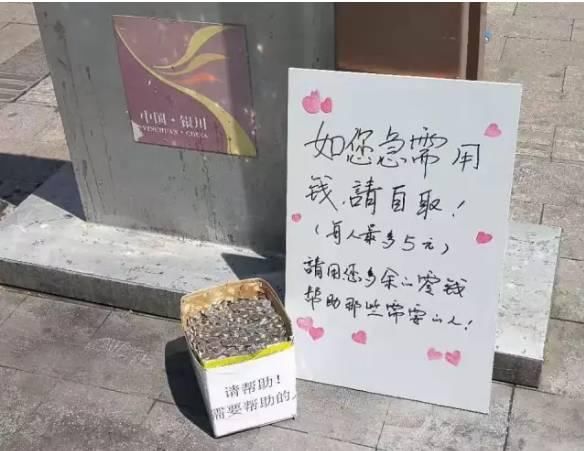 中国·银川
YINCHUAN·CHINA
如您急需用
钱,請自取!
(每人最多5元)
請用您多余的零钱
帮助那些需要的人!
请帮助!
需要帮助的人